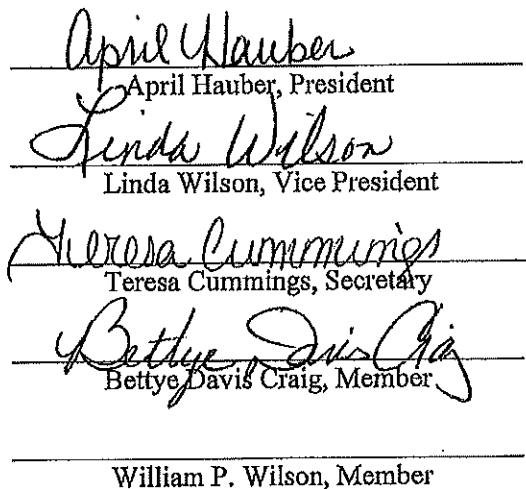 April Hauber
April Hauber, President
Linda Wilson
Linda Wilson, Vice President
Teresa Cummings
Teresa Cummings, Secretary
Bettye Davis Craig
Bettye Davis Craig, Member
William P. Wilson, Member